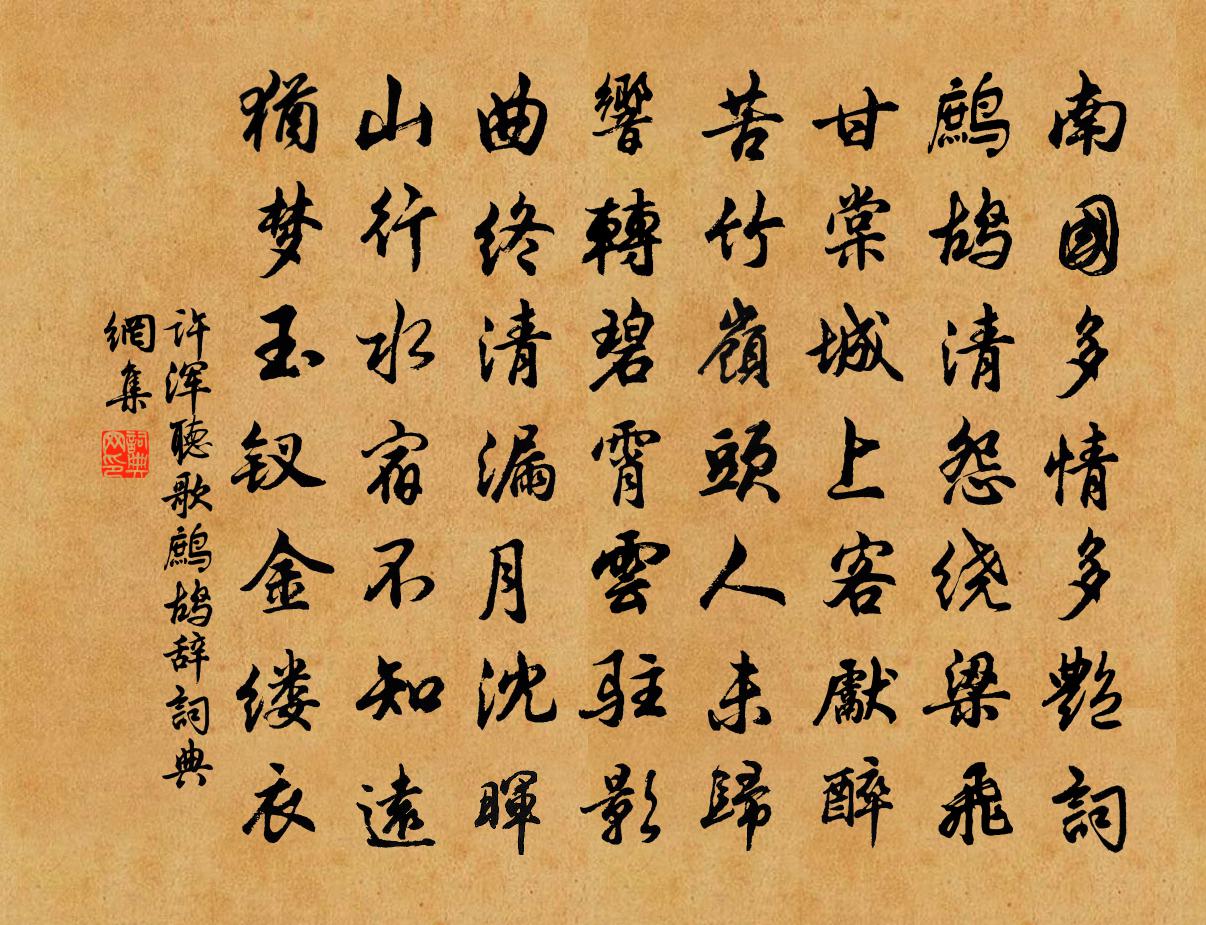 南國多情多艷詞
鷓鴣清怨绕梁飛
甘棠城上客獻醉
苦竹嶺頭人未歸
響轉碧霄雲駐影
曲终清漏月沈暉
山行水宿不知遠
猶梦玉钗金缕衣
许浑聽歌鷓鴣辞詞典
網集
詞典
网印